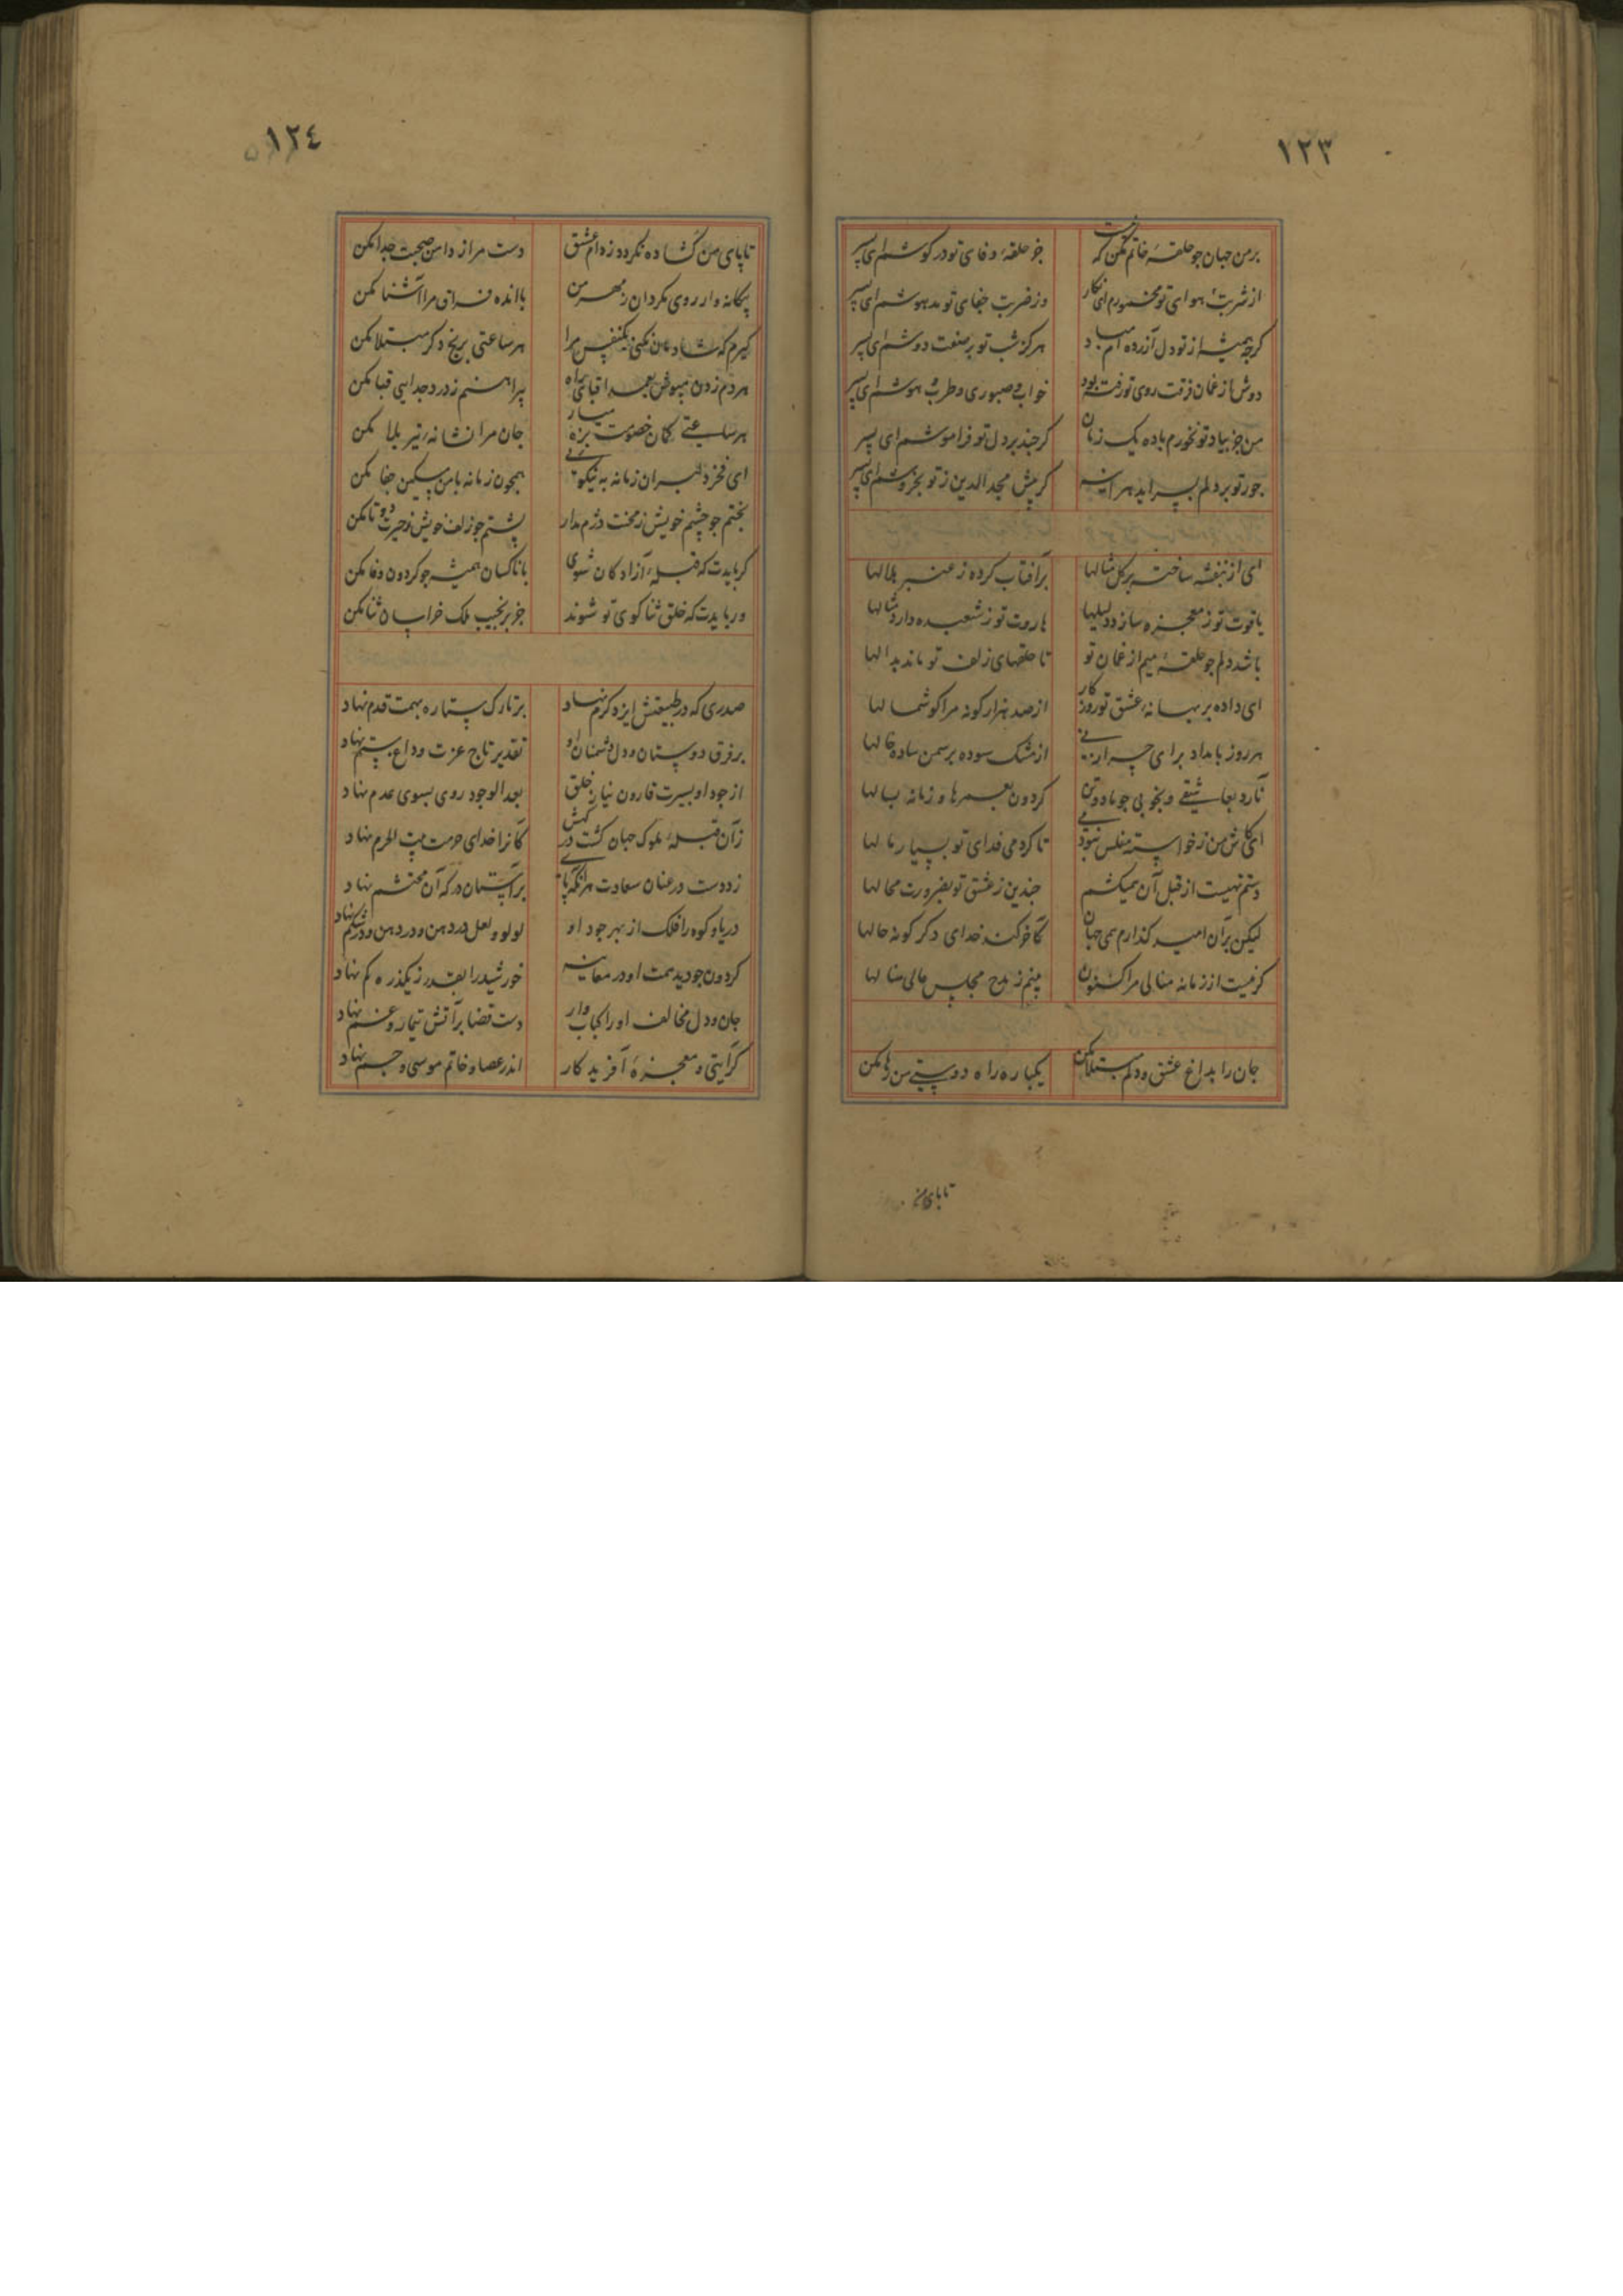 ١٢٣
برمن جهان جو حلقهٔ خاتم مکن که نیست جز حلقهٔ وفای تو در کوشم ای پسر
از شربت هوای تو مخمورم ای نکار وز ضربت جفای تو مدهوشم ای پسر
کرجه همیشه از تو دل آزرده ام مباد هرکز شب تو بر صفت دوشم ای پسر
دوش از غمان فرقت روی تو رفته بود خواب و صبوری و طرب و هوشم ای پسر
من جز بیاد تو نخورم باده یک زمان کرجند بر دل تو فراموشم ای پسر
جور تو بر دلم بسر اید هر اینه کر پیش مجد الدین ز تو بخروشم ای پسر
ای از بنفشه ساخته برکل مثالها برآفتاب کرده ز عنبر هلالها
یاقوت تو ز معجزه سازد دلیلها هاروت تو ز شعبده دارد مثالها
باشد دلم جو حلقهٔ میم از غمان تو تا حلقهای زلف تو ماند بدالها
ای داده بر بهانهٔ عشق تو روزکار از صد هزار کونه مرا کوشمالها
هر روز بامداد برای از مشک سوده برسمن ساده خالها
نارد بعاشقی و بخوبی جو ما دو تن کردون بعمرها و زمانه بسالها
ای کاش من ز خواسته مفلس نبودمی تا کردمی فدای تو بسیار مالها
دستم تهیست از قبل آن همیکشم جندین ز عشق تو بضرورت محالها
لیکن برآن امید کذارم همی جهان کاخر کند خدای دکر کونه حالها
کر نیست از زمانه منالی مرا کنون بینم ز مدح مجلس عالی منالها
جان را بداغ عشق و دلم مبتلا مکن یکباره راه دوستی من رها مکن
تا پای من
١٢٤
تا پای من کشاده نکردد ز دام عشق دست مرا ز دامن صحبت جدا مکن
بیکانه وار روی مکردان ز مهر من با انده فراق مرا آشنا مکن
کیرم که شادمان نکنی یکنفس مرا هر ساعتی برنج دکر مبتلا مکن
هر دم زدن مپوش بعمدا قبای پیراهنم ز درد جدایی قبا مکن
هر ساعتی کمان خصومت بزه میار جان مرا نشانهٔ تیر بلا مکن
ای فخر دلبران زمانه به نیکویی همجون زمانه با من مسکین جفا مکن
بختم جو جشم خویش ز محنت دژم مدار پشتم جو زلف خویش ز حیرت دوتا مکن
کر بایدت که قبلهٔ آزادکان شوی با ناکسان همیشه جو کردون وفا مکن
ور بایدت که خلق ثنا کوی تو شوند جز بر نجیب ملک خراسان ثنا مکن
صدری که در طبیعتش ایزد کرم نهاد بر تارک ستاره بهمت قدم نهاد
بر فرق دوستان و دل دشمنان او تقدیر تاج عزت و داغ ستم نهاد
از جود او بسیرت قارون نیاز خلق بعد الوجود روی بسوی عدم نهاد
زآن قبلهٔ ملوک جهان کشت درکهش کانرا خدای حرمت بیت الحرم نهاد
زد دست در عنان سعادت هرانکه پای برآستان درکه آن محتشم نهاد
دریا و کوه را فلک از بهر جود او لولو و لعل در دهن و در شکم نهاد
کردون جو دید همت او در معاینه خورشید را بقدر ز یکذره کم نهاد
جان و دل مخالف او را کباب وار دست قضا برآتش تیمار و غم نهاد
کرآیتی و معجزهٔ آفریدکار اندر عصا و خاتم موسی و جم نهاد